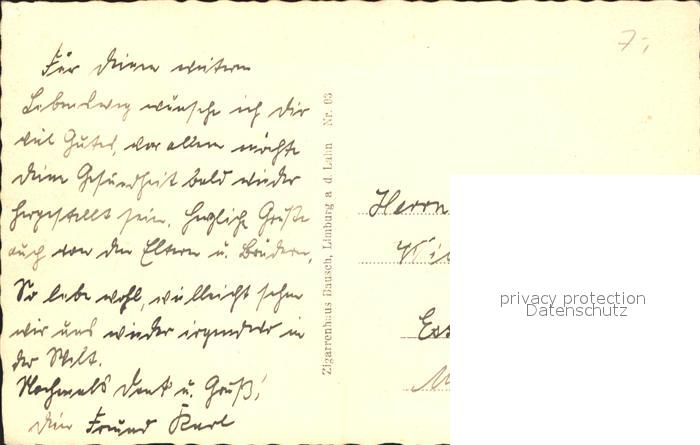 7,-
Für deinen weitern
Lebensweg wünsche ich dir
viel Gutes, vor allem möchte
deine Gesundheit bald wieder
hergestellt sein. Herzliche Grüße
auch von den Eltern u. Brüdern,
So lebe wohl, vielleicht sehen
wir uns wieder irgendwo in
der Welt.
Nochmals Dank u. Gruß!
dein Freund Karl
Zigarrenhaus Bausch, Limburg a d. Lahn Nr. 63
Herrn
Ess
privacy protection
Datenschutz